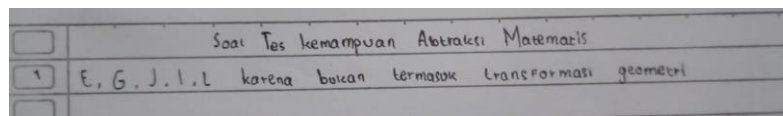 Soal Tes kemampuan Abtraksi Matematis
1 E, G, J, I, L karena bukan termasuk transformasi geometri